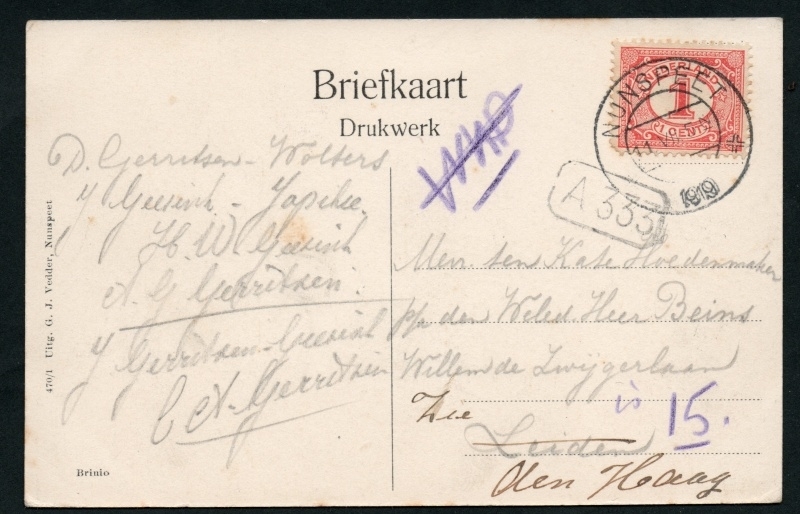 Briefkaart
Drukwerk
NEDERLAND
1
CENT
NUNSPEET
1919
A 333
D. Gerritsen-Wolters
J Geesink-Japikse
H. W. Geesink
A G Gerritsen.
J Gerritsen-Geesink
C A. Gerritsen
Mevr. ten Kate Hoedenmaker
p/a den Weled. Heer Beins
Willem de Zwijgerlaan
is 15.
Zie
Leiden
den Haag
470/1 Uitg. G. J. Vedder, Nunspeet
Brinio